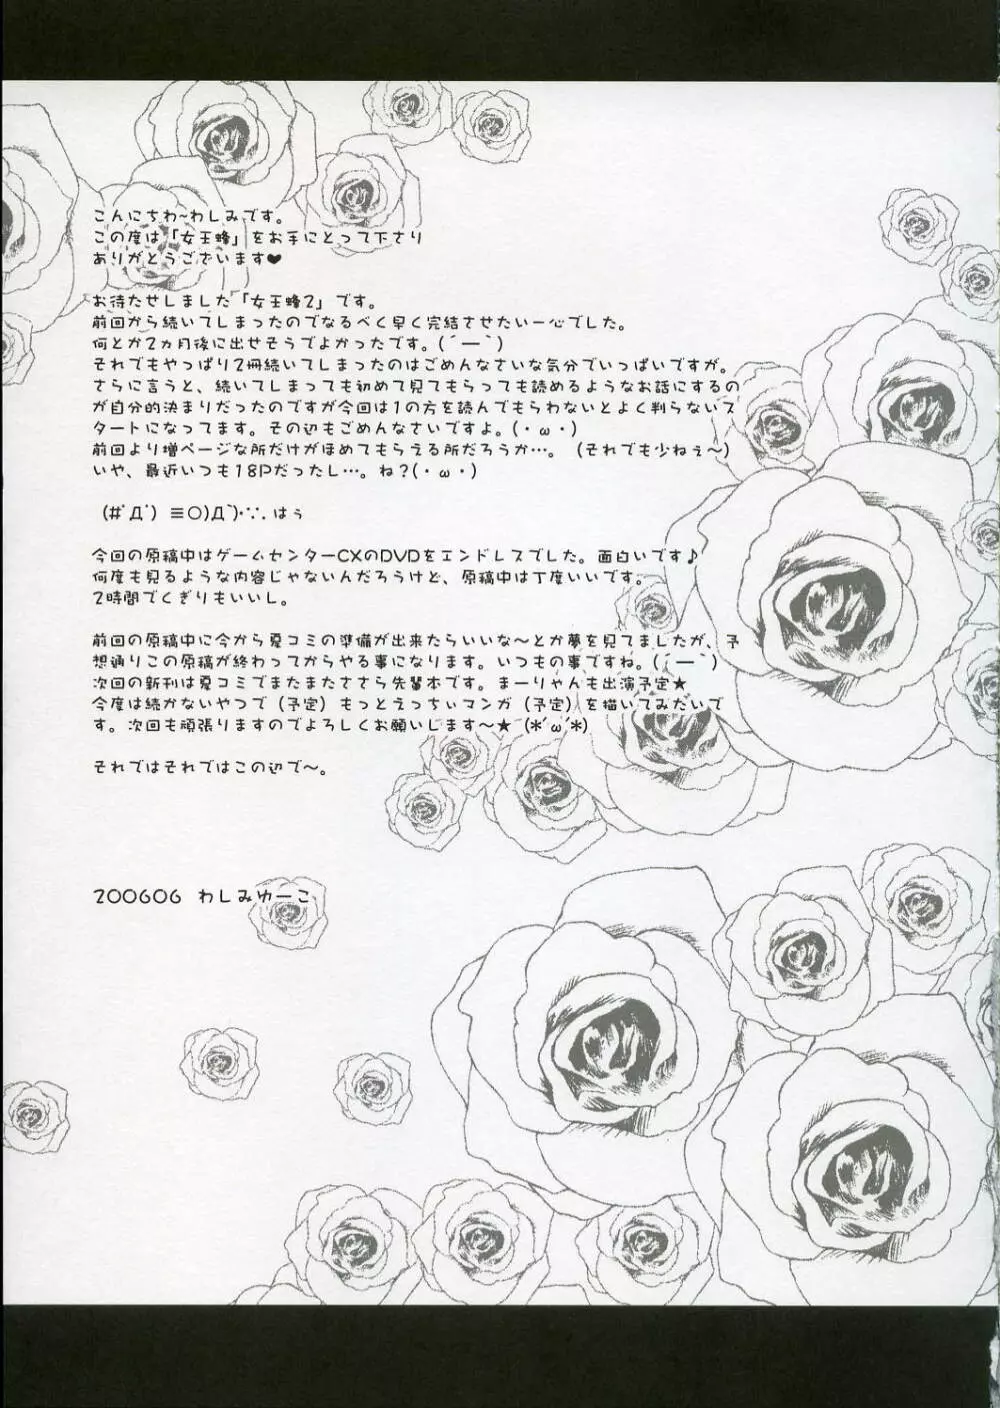 こんにちわ~わしみです。
この度は「女王蜂」をお手にとって下さり
ありがとうございます♥
お待たせしました「女王蜂2」です。
前回から続いてしまったのでなるべく早く完結させたい一心でした。
何とか2ヵ月後に出せそうでよかったです。(´ー｀)
それでもやっぱり2冊続いてしまったのはごめんなさいな気分でいっぱいですが。
さらに言うと、続いてしまっても初めて見てもらっても読めるようなお話にするの
が自分的決まりだったのですが今回は1の方を読んでもらわないとよく判らないス
タートになってます。その辺もごめんなさいですよ。(・ω・)
前回より増ページな所だけがほめてもらえる所だろうか…。(それでも少ねぇ〜)
いや、最近いつも18Pだったし…。ね?(・ω・)
(#ﾟДﾟ) ≡○)Д`)･∵. はぅ
今回の原稿中はゲームセンターCXのDVDをエンドレスでした。面白いです♪
何度も見るような内容じゃないんだろうけど、原稿中は丁度いいです。
2時間でくぎりもいいし。
前回の原稿中に今から夏コミの準備が出来たらいいな〜とか夢を見てましたが、予
想通りこの原稿が終わってからやる事になります。いつもの事ですね。(´ー｀)
次回の新刊は夏コミでまたまたささら先輩本です。まーりゃんも出演予定★
今度は続かないやつで(予定)もっとえっちぃマンガ(予定)を描いてみたいで
す。次回も頑張りますのでよろしくお願いします〜★(*´ω`*)
それではそれではこの辺で〜。
200606 わしみゆーこ